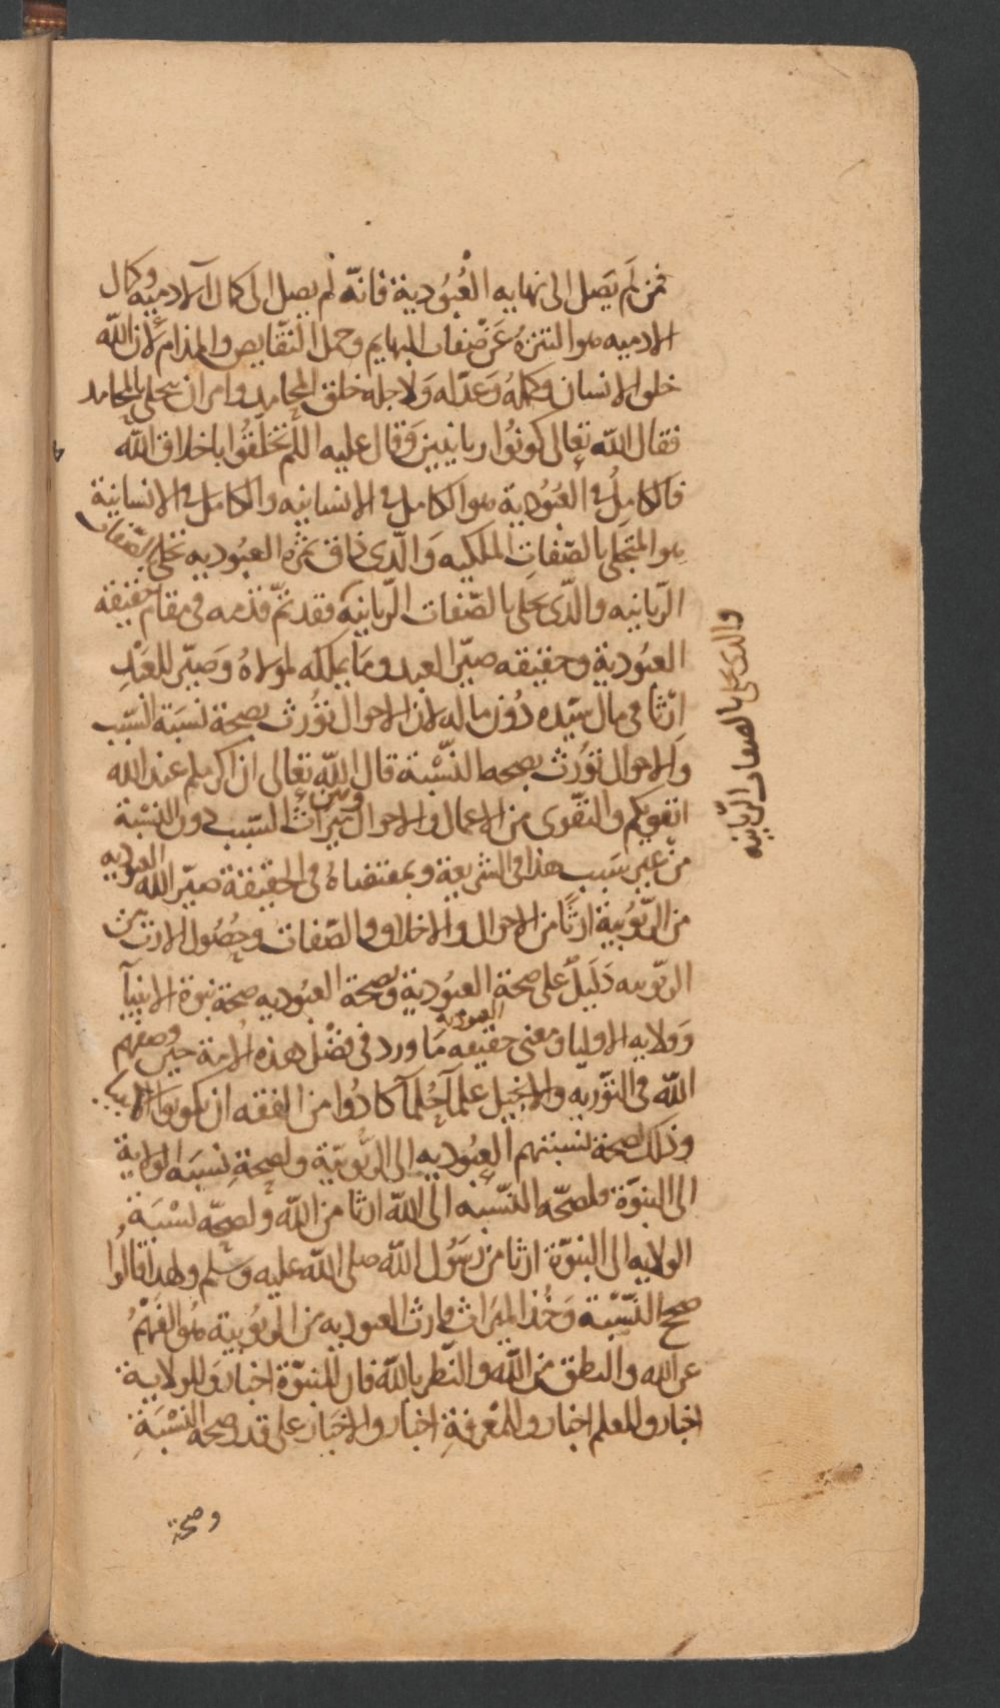 فمن لَم يَصل الى نهايه العُبُودية فانّه لم يصل الى كمال الادميه وكمال
الادميه هو التنزهُ عَن صفات البهايم وحمل النقايص والمذام لان الله
خلق الانسان وكملهُ وَعدله وَلاجله خلق المحامد وامر ان يتحلى بالمحامد
فقال الله تعالى كونُوا ربانيين وَقال عليه السلم تخلّقُوا باخلاق الله
فالكاملُ في العُبُودية هو الكامل في الانسانيه والكامل في الانسانية
هو المتجلى بالصّفاتِ الملكيه وَالّذى ذاق ثمرة العبُوديه تحلى بالصّفات
الرّبانيه والّذى تحلى بالصّفات الرّبانيه فقد تمّ قدمه في مقام حقيقة
العبُودية وحقيقه صيّر العبد وَما يملكه لمولاهُ وَصيّر للعَبْدِ
ارثا فى مال سيّده دُون ماله لان الاحوال تؤرث بصحة نسبَة السّبب
وَالاحوال تؤرث بصحه النّسْبة قال الله تعالى ان اكرمكم عند الله
اتقيكم والتقوى من الاعمال والاحوال ميراث السّبب دون النسْبة
من غير سَبب هذا فى الشريعة وبمقتضاهُ فى الحقيقة صيّر الله العبوديه
من الرّبُوبية ارثًا من الاحوال والاخلاق والصّفات وحصُول الارث من
الرّبوبيه دَليلٌ على صحة العبُودية وبصحة العبُوديه صحة نبوة الانبيآ
وَولايه الاوليا ومعنى حقيقه العبوديه مَا ورد فى فضْل هذه الامة حين وصفهم
الله فى التّوريه والانجيل علمآ حُلمآ كادُوا من الفقه ان يكونوا انبيا
وذلك لصحة نسبتهم العبُوديه الى الرّبُوبيّة ولصحةِ نسبَه الولاية
الى النبوّة فلصحّه النّسْبَه الى الله ارثا من الله ولصحّه نسْبَة
الولايه الى النبوّة ارثا من رسُول الله صلى الله عليه وَسلم ولهذا قالُوا
صحح النّسْبة وَخُذ الميَراث فارث العبوديه من الرّبُوبية هُو الفَهْمُ
عن الله والنطق من الله والنّظر بالله فان للنبوّة اخبار وَللولاية
اخبار وللعلم اخبار وللمعْرفةِ اخبار والاخبَار على قدر صحه النسْبَةِ
وصحة
والذى تحلى بالصفات الرّبّانيه